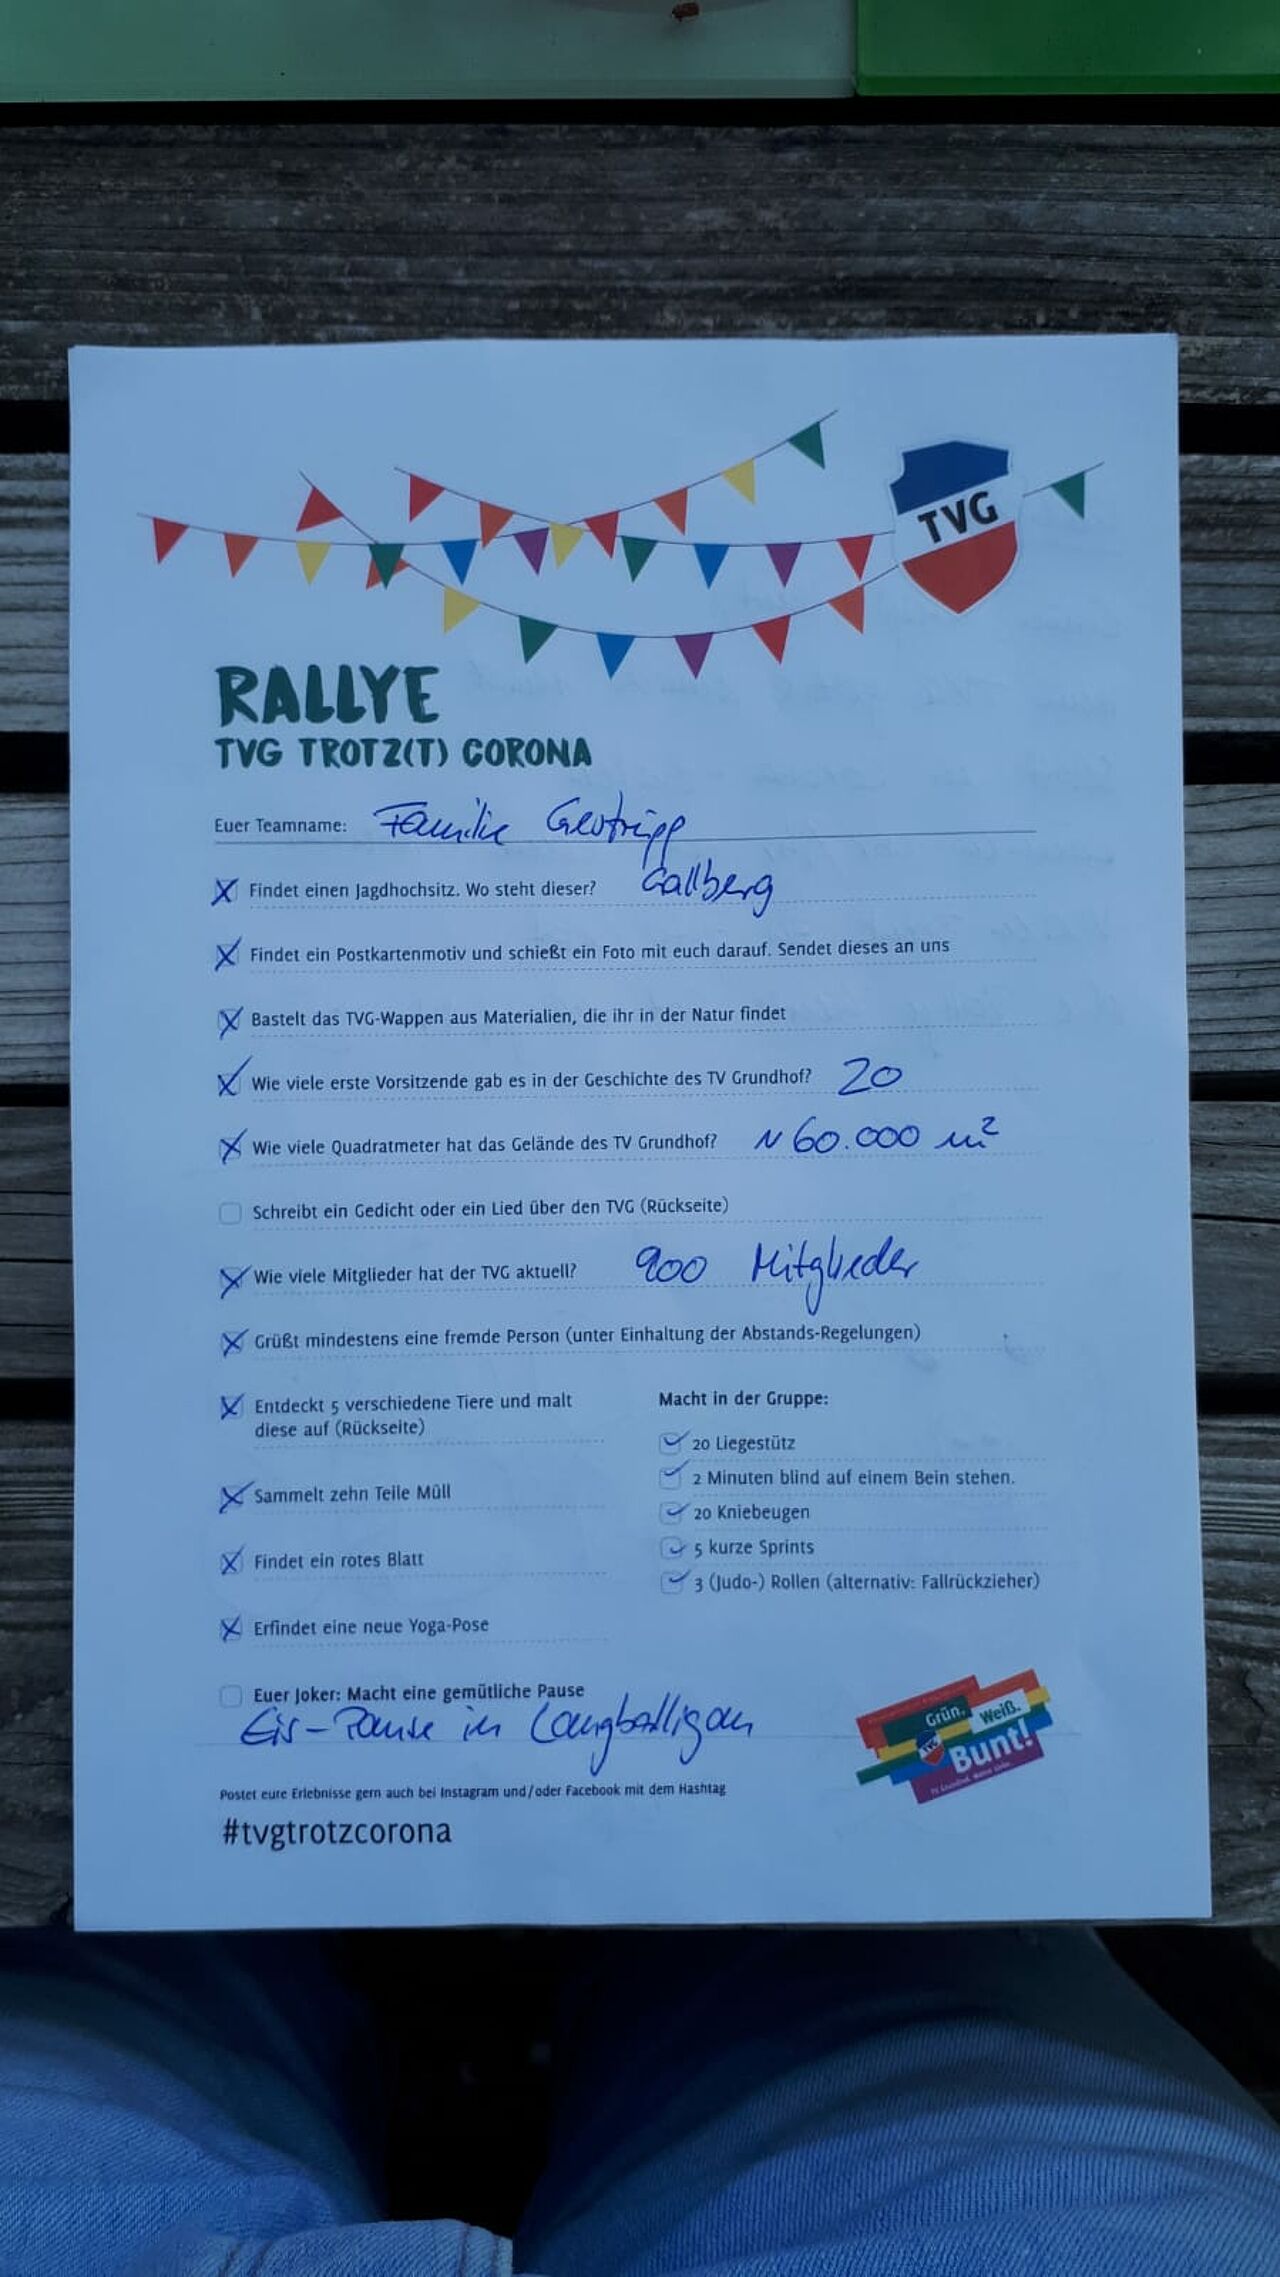 TVG
RALLYE
TVG TROTZ(T) CORONA
Euer Teamname: Familie
Findet einen Jagdhochsitz. Wo steht dieser? Gallberg
Findet ein Postkartenmotiv und schießt ein Foto mit euch darauf. Sendet dieses an uns
Bastelt das TVG-Wappen aus Materialien, die ihr in der Natur findet
Wie viele erste Vorsitzende gab es in der Geschichte des TV Grundhof? 20
Wie viele Quadratmeter hat das Gelände des TV Grundhof? ~ 60.000 m²
Schreibt ein Gedicht oder ein Lied über den TVG (Rückseite)
Wie viele Mitglieder hat der TVG aktuell? 900 Mitglieder
Grüßt mindestens eine fremde Person (unter Einhaltung der Abstands-Regelungen)
Entdeckt 5 verschiedene Tiere und malt
diese auf (Rückseite)
Sammelt zehn Teile Müll
Findet ein rotes Blatt
Erfindet eine neue Yoga-Pose
Macht in der Gruppe:
20 Liegestütz
2 Minuten blind auf einem Bein stehen.
20 Kniebeugen
5 kurze Sprints
3 (Judo-) Rollen (alternativ: Fallrückzieher)
Euer Joker: Macht eine gemütliche Pause
Eis-Pause in Langballigau
Grün. Weiß.
TVG Bunt!
Postet eure Erlebnisse gern auch bei Instagram und/oder Facebook mit dem Hashtag
#tvgtrotzcorona